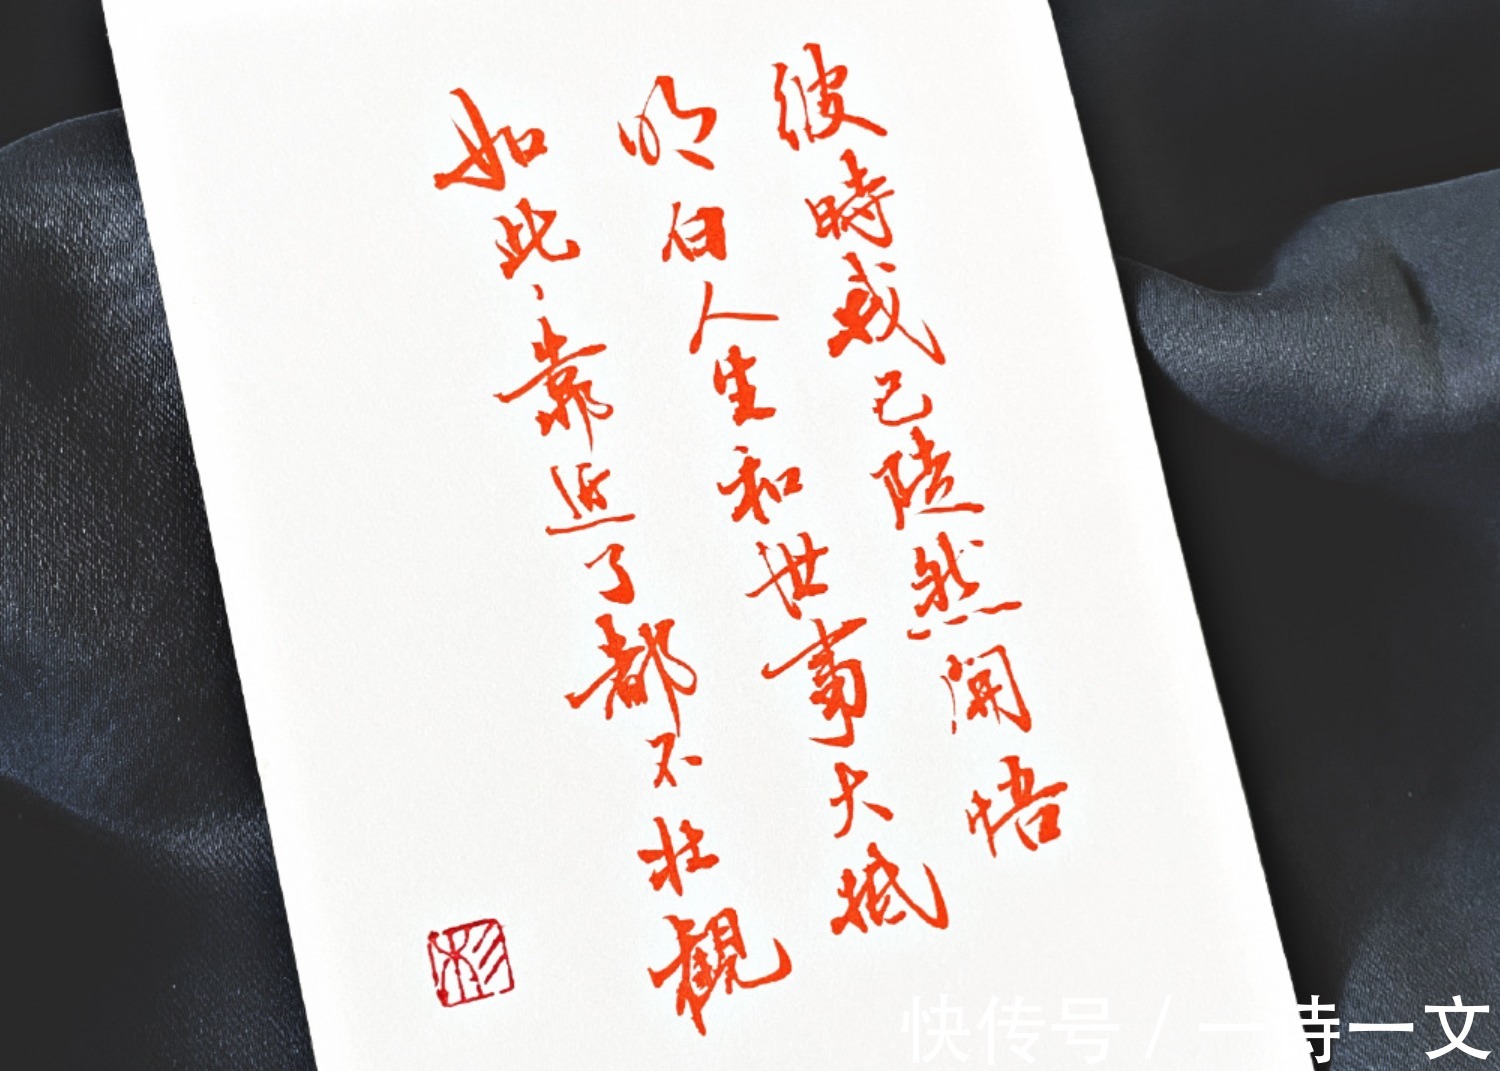 彼時我已陡然開悟
明白人生和世事大抵
如此、靠近了都不壯觀
杉
快传号 / 一诗一文